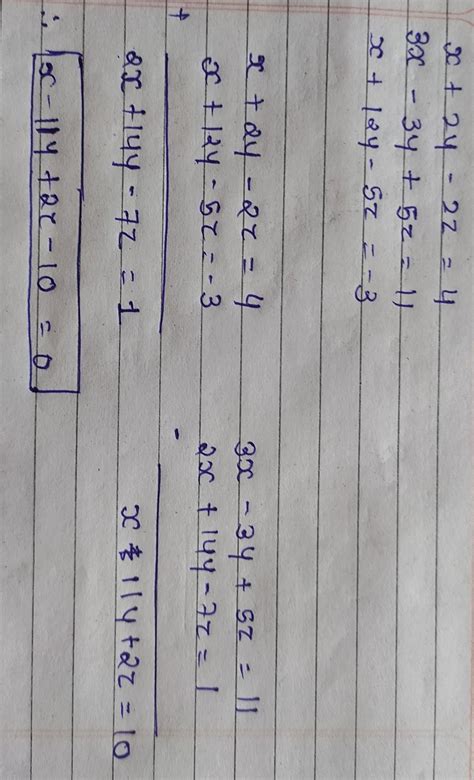 x + 2y - 2z = 4
3x - 3y + 5z = 11
x + 12y - 5z = -3
x + 2y - 2z = 4
x + 12y - 5z = -3
+
2x + 14y - 7z = 1
3x - 3y + 5z = 11
2x + 14y - 7z = 1
-
x 11y + 2z = 10
∴ x - 11y + 2z - 10 = 0